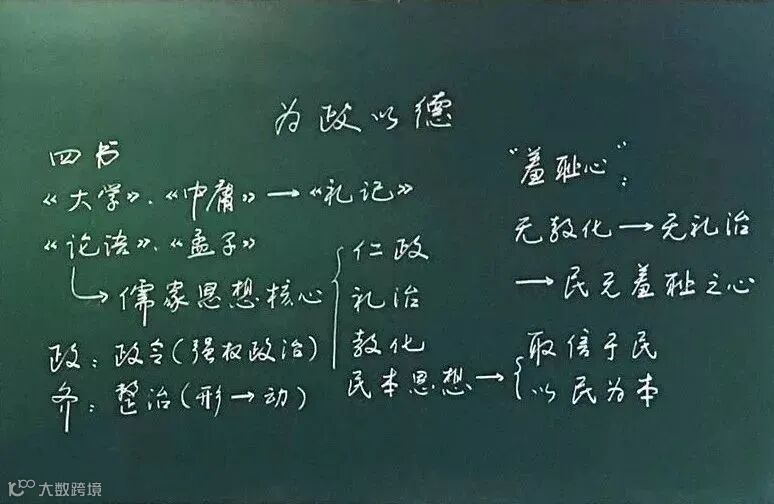 为政以德
四书
《大学》·《中庸》→《礼记》
《论语》·《孟子》
→儒家思想核心{
仁政
礼治
教化
民本思想→{
取信于民
以民为本
政:政令(强权政治)
齐:整治(形→动)
“羞耻心”:
无教化→无礼治
→民无羞耻之心
大数跨境